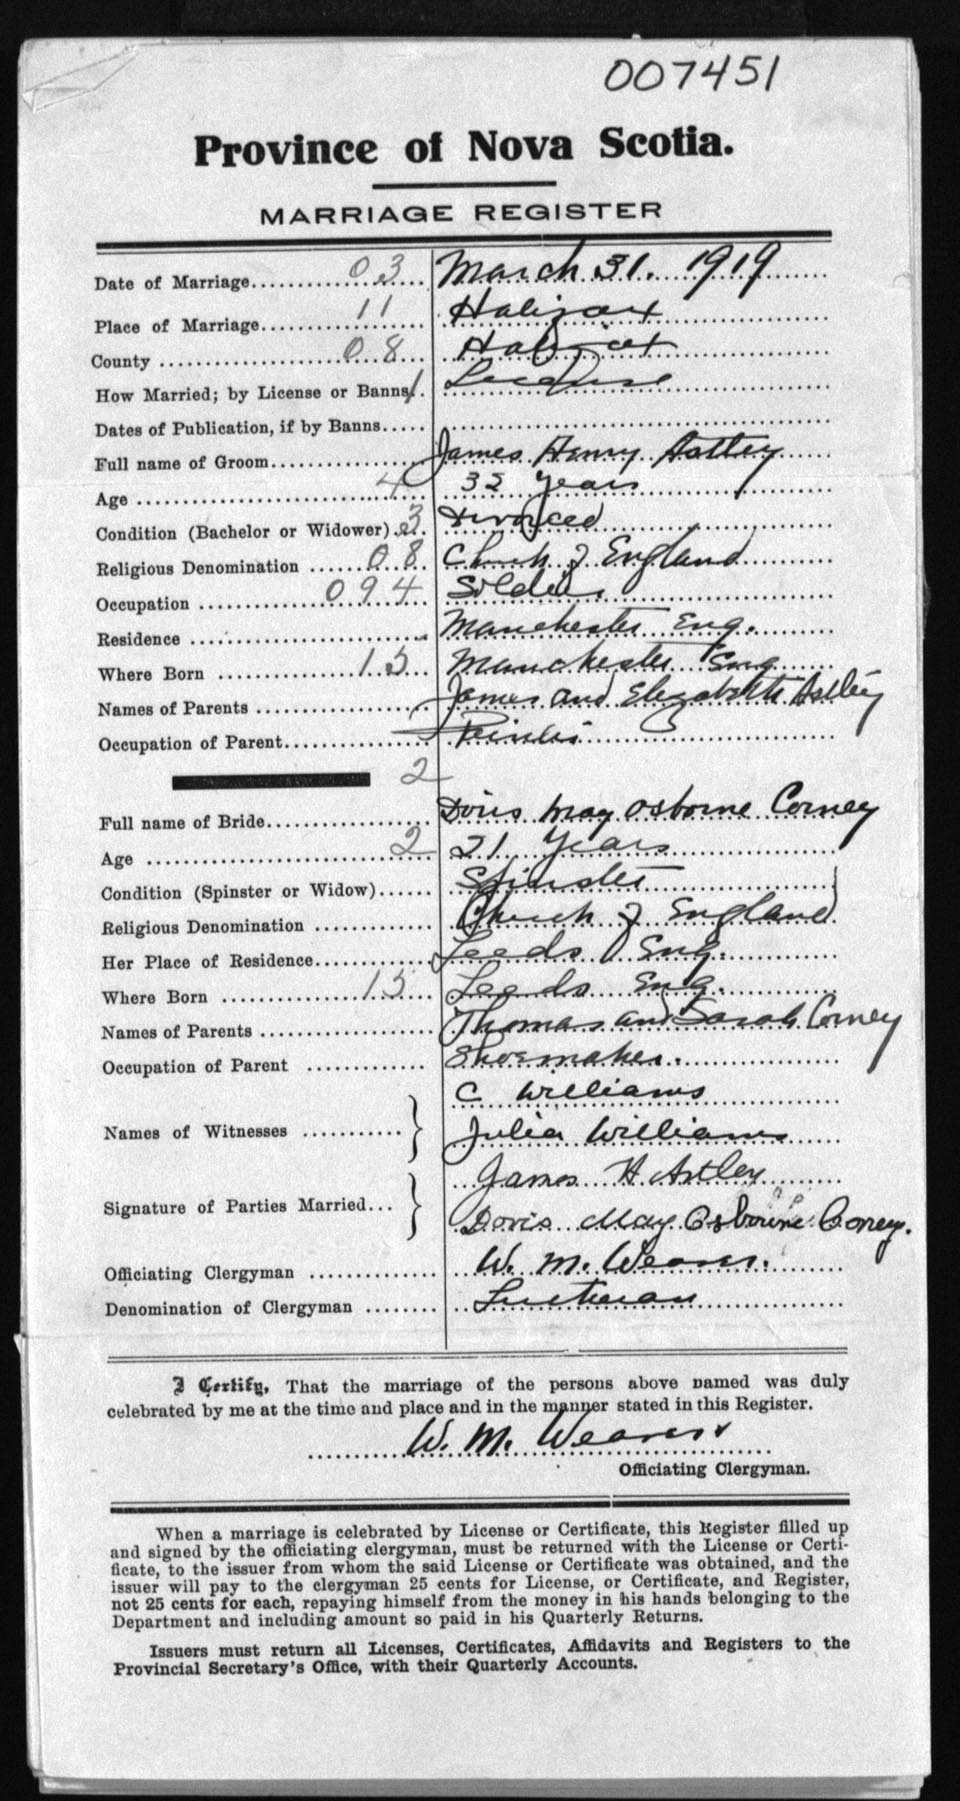 007451
Province of Nova Scotia.
MARRIAGE REGISTER
Date of Marriage 03 March 31. 1919
Place of Marriage 11 Halifax
County 08 Halifax
How Married; by License or Banns 1 License
Dates of Publication, if by Banns
Full name of Groom James Henry Astley
Age 4 32 Years
Condition (Bachelor or Widower) 3 Divorced
Religious Denomination 08 Church of England
Occupation 094 Soldier
Residence Manchester Eng.
Where Born 15 Manchester Eng
Names of Parents James and Elizabeth Astley
Occupation of Parent
2
Full name of Bride Doris May Osborne Corney
Age 2 21 Years
Condition (Spinster or Widow) Spinster
Religious Denomination Church of England
Her Place of Residence Leeds Eng.
Where Born 15 Leeds Eng.
Names of Parents Thomas and Sarah Corney
Occupation of Parent Shoemaker.
C Williams
Names of Witnesses Julia Williams
James H Astley
Signature of Parties Married Doris May Osbourne Corney.
Officiating Clergyman W. M. Weaver.
Denomination of Clergyman Lutheran
I Certify, That the marriage of the persons above named was duly
celebrated by me at the time and place and in the manner stated in this Register.
W. M. Weaver
Officiating Clergyman.
When a marriage is celebrated by License or Certificate, this Register filled up
and signed by the officiating clergyman, must be returned with the License or Certi-
ficate, to the issuer from whom the said License or Certificate was obtained, and the
issuer will pay to the clergyman 25 cents for License, or Certificate, and Register,
not 25 cents for each, repaying himself from the money in his hands belonging to the
Department and including amount so paid in his Quarterly Returns.
Issuers must return all Licenses, Certificates, Affidavits and Registers to the
Provincial Secretary's Office, with their Quarterly Accounts.